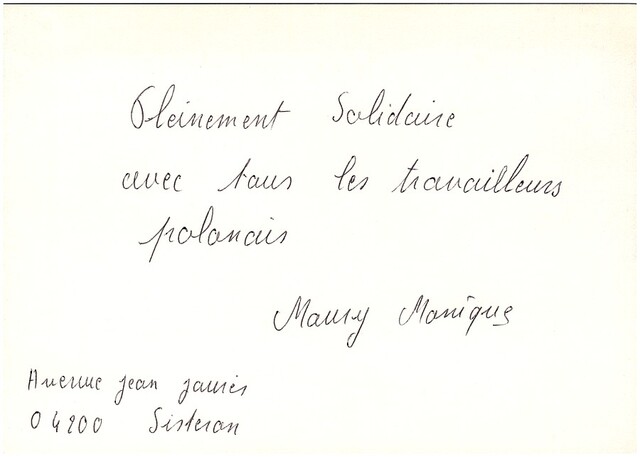 Pleinement Solidaire
avec tous les travailleurs
polonais
Maury Monique
Avenue jean jaurès
04200 Sisteron